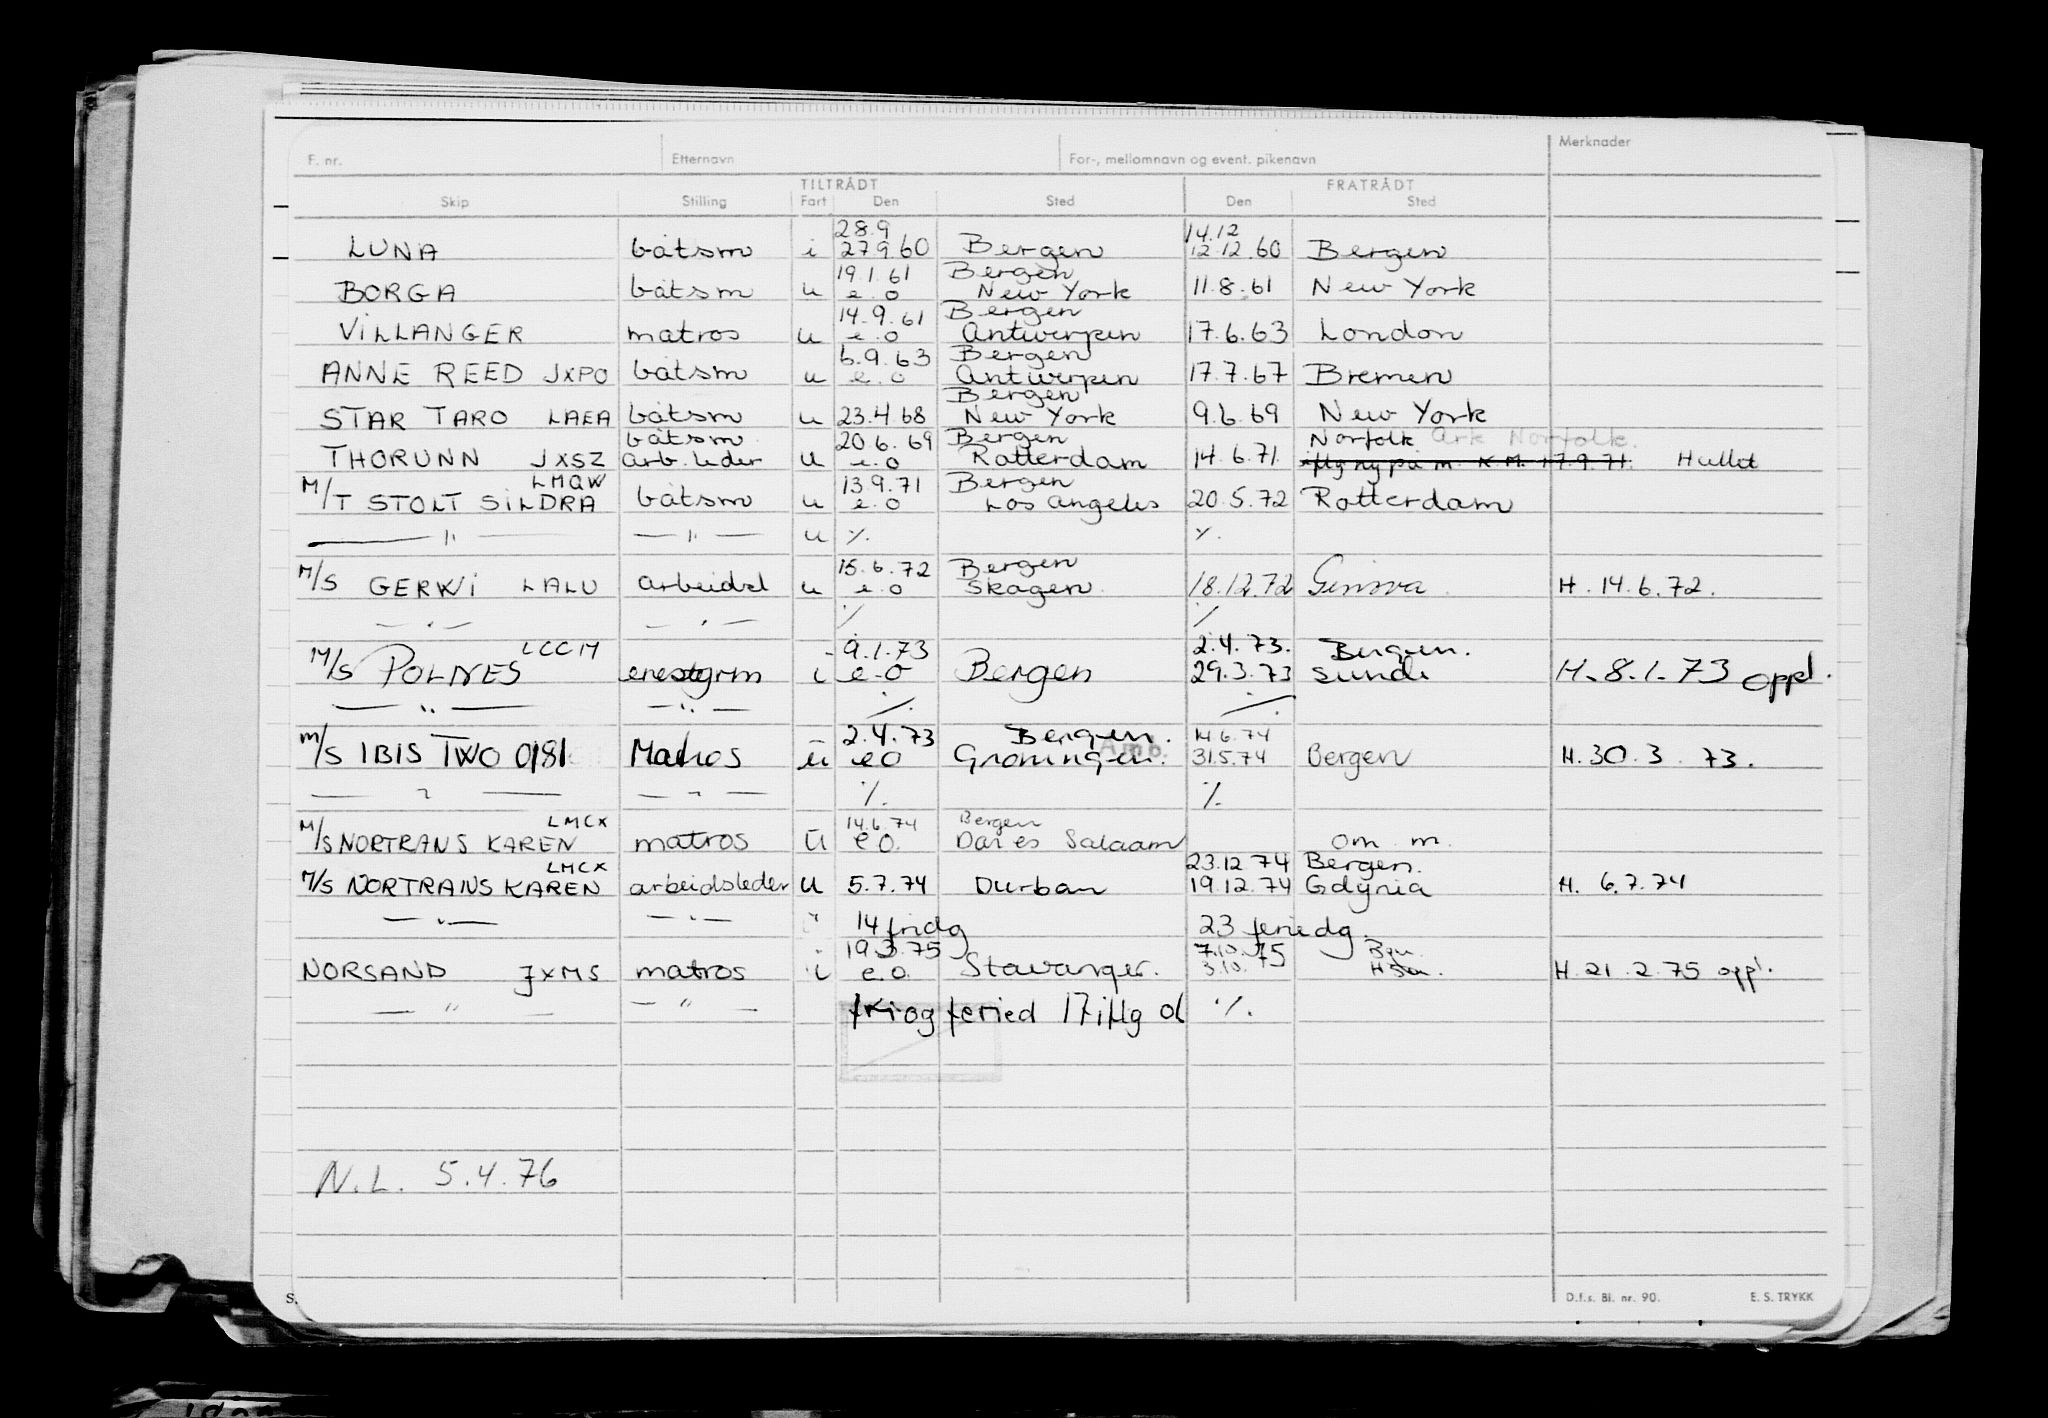 F. nr. Etternavn For-, mellomnavn og event. pikenavn Merknader
TILTRÅDT FRATRÅDT
Skip Stilling Fart Den Sted Den Sted
28.9 14.12
LUNA båtsm i 27.9.60 Bergen 12.12.60 Bergen
19.1.61 Bergen
BORGA båtsm u e.o New York 11.8.61 New York
14.9.61 Bergen
VILLANGER matros u e.o Antwerpen 17.6.63 London
6.9.63 Bergen
ANNE REED JXPO båtsm u e.o Antwerpen 17.7.67 Bremen
Bergen
STAR TARO LAEA båtsm u 23.4.68 New York 9.6.69 New York
båtsm 20.6.69 Bergen Norfolk Ark Norfolk.
THORUNN JXSZ arb.leder u e.o Rotterdam 14.6.71. iflg ny på m. K.M. 17.9.71. Hullet
LMQW 13.9.71 Bergen
M/T STOLT SILDRA båtsm u e.o Los Angeles 20.5.72 Rotterdam
— " — — " — u %. %.
15.6.72 Bergen
M/S GERWI LALU arbeidsl u e.o Skagen 18.12.72 Genova H. 14.6.72.
— " — — " — % %
LCCM 9.1.73 2.4.73. Bergen.
M/S POLNES i e.o Bergen 29.3.73 Sunde H. 8.1.73 oppl.
— " — — " — %. %.
2.4.73 Bergen. 14.6.74
M/S IBIS TWO 0181 Matros u eo Groningen. 31.5.74 Bergen H. 30.3.73.
— " — — " — %. %.
LMCX 14.6.74 Bergen
M/S NORTRANS KAREN matros u e o. Dar es Salaam om m.
LMCX 23.12.74 Bergen.
M/S NORTRANS KAREN arbeidsleder u 5.7.74 Durban 19.12.74 Gdynia H. 6.7.74
— " — — " — " 14 fridg 23 feriedg.
19.3.75 7.10.75 Bgn
NORSAND JXMS matros i e.o. Stavanger. 3.10. H. 21.2.75 oppl.
— " — — " — fri og feried 17 iflg d %.
N.L. 5.4.76
S. D.f.s. Bl. nr. 90. E. S. TRYKK